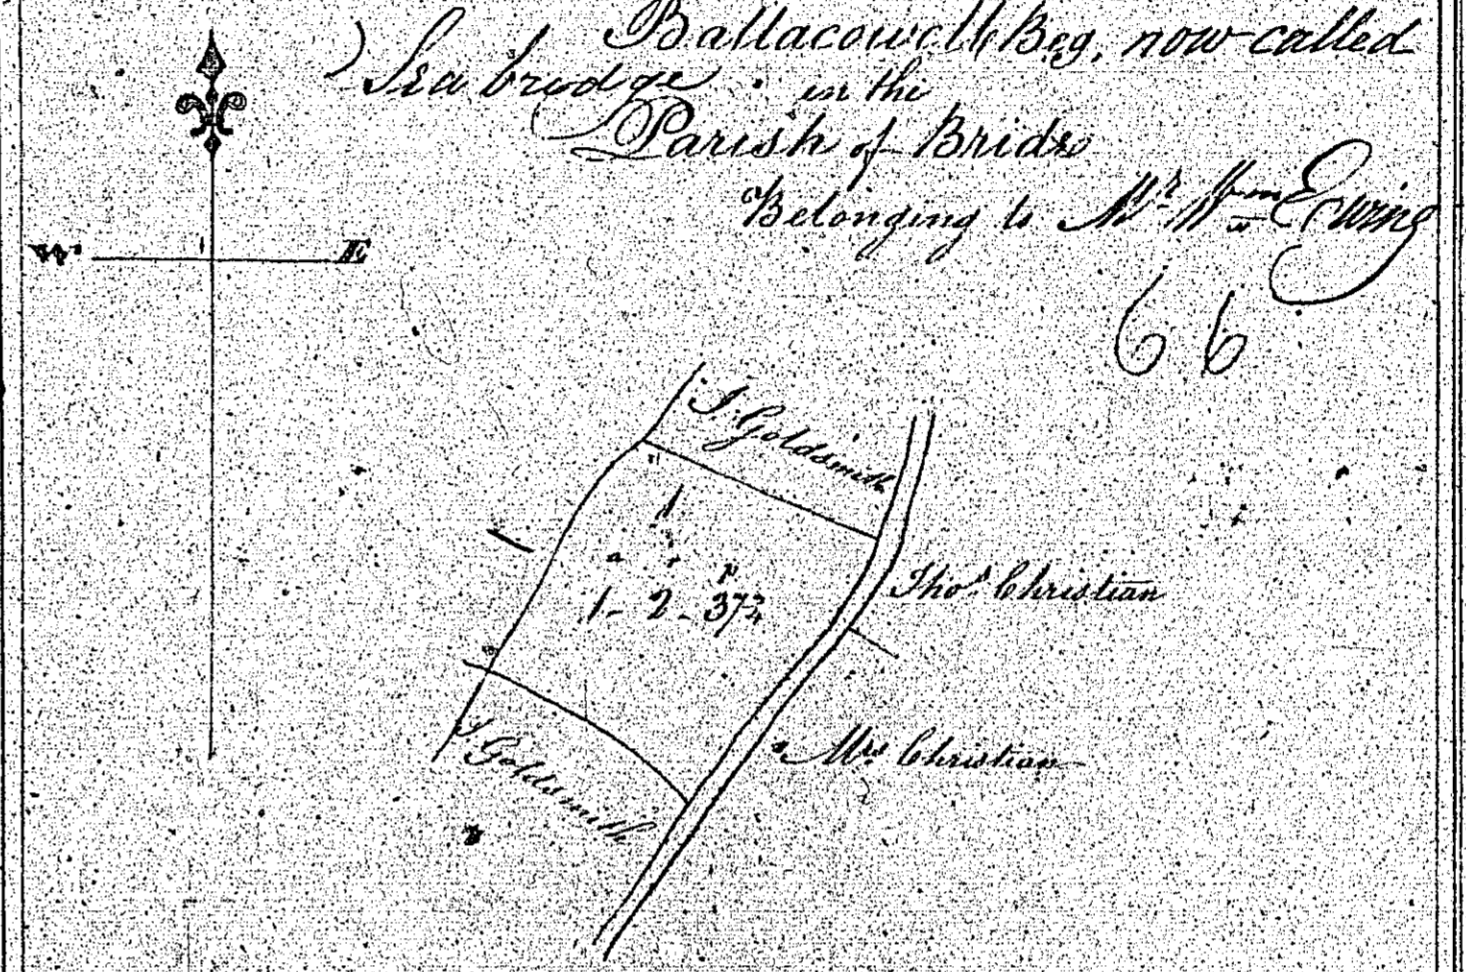 Ballacowell Beg, now called
Sea bridge in the
Parish of Bride
Belonging to Mr Wm Ewing
W E
66
J. Goldsmith
1
a r p
1 - 2 - 37¾
Thos Christian
Mrs Christian
J Goldsmith